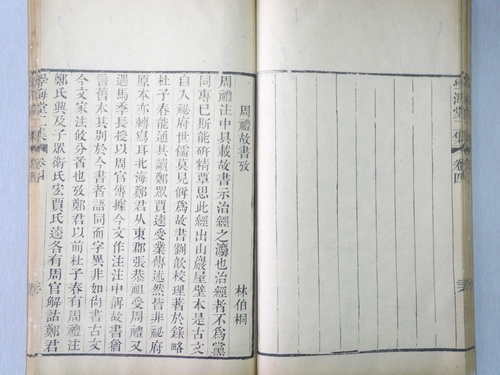 學海堂二集
卷四
周禮故書攷
林伯桐
周禮注中具載故書示治經之灋也治經者不爲黨
同專巳斯能硏精覃思此經出山巖屋壁本是古文
自入祕府世儒莫見解爲故書劉歆校理著於錄略
杜子春能通其讀鄭眾賈逵受業傳述然皆非祕府
原本亦轉寫耳北海鄭君从東郡張恭祖受周禮又
遇馬季長授以周官傳據今文作注注中解故書猶
言舊本其別於今書者語同而字異非如尙書古文
今文家法攸分者也攷鄭君以前杜子春有周禮注
鄭氏興及子眾衛氏宏賈氏逵各有周官解詁鄭君
學海堂二集
卷